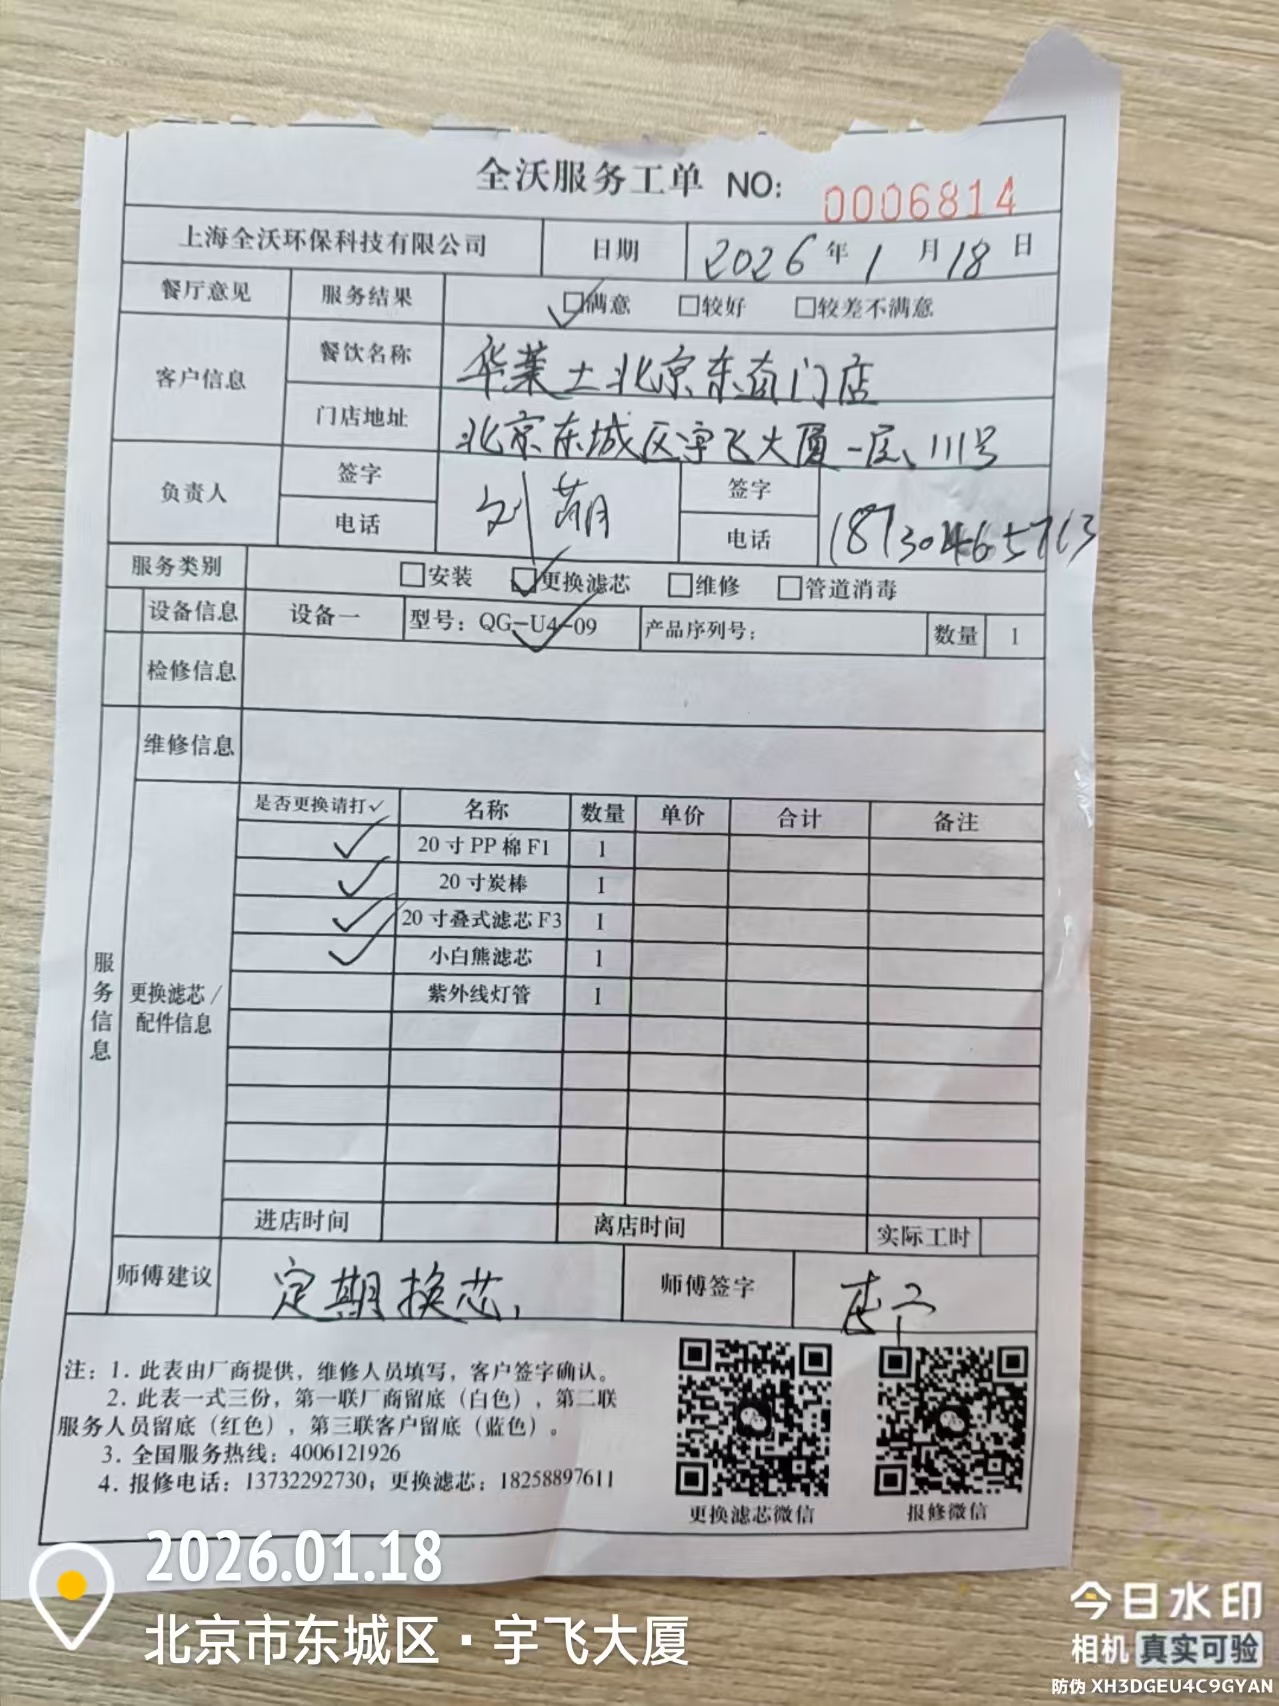 全沃服务工单 NO: 0006814
上海全沃环保科技有限公司 日期 2026年1月18日
餐厅意见 服务结果 ☑满意 □较好 □较差不满意
客户信息 餐饮名称 华莱士北京东直门店
门店地址 北京东城区宇飞大厦一层、111号
负责人 签字 刘 签字
电话 电话 18730465713
服务类别 □安装 ☑更换滤芯 □维修 □管道消毒
设备信息 设备一 型号:QG-U4-09 ✓ 产品序列号: 数量 1
检修信息
维修信息
服务信息
更换滤芯/配件信息
是否更换请打✓ 名称 数量 单价 合计 备注
✓ 20寸PP棉F1 1
✓ 20寸炭棒 1
✓ 20寸叠式滤芯F3 1
✓ 小白熊滤芯 1
紫外线灯管 1
进店时间 离店时间 实际工时
师傅建议 定期换芯, 师傅签字
注:1. 此表由厂商提供,维修人员填写,客户签字确认。
2. 此表一式三份,第一联厂商留底(白色),第二联
服务人员留底(红色),第三联客户留底(蓝色)。
3. 全国服务热线:4006121926
4. 报修电话:13732292730;更换滤芯:18258897611
更换滤芯微信 报修微信
2026.01.18
北京市东城区·宇飞大厦
今日水印
相机 真实可验
防伪 XH3DGEU4C9GYAN